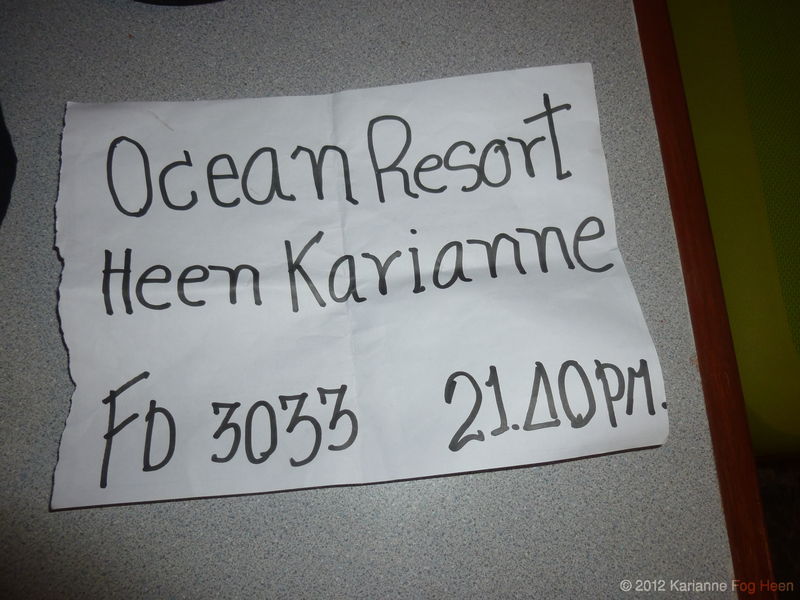 Ocean Resort
Heen Karianne
FD 3033 21.40PM.
© 2012 Karianne Fog Heen